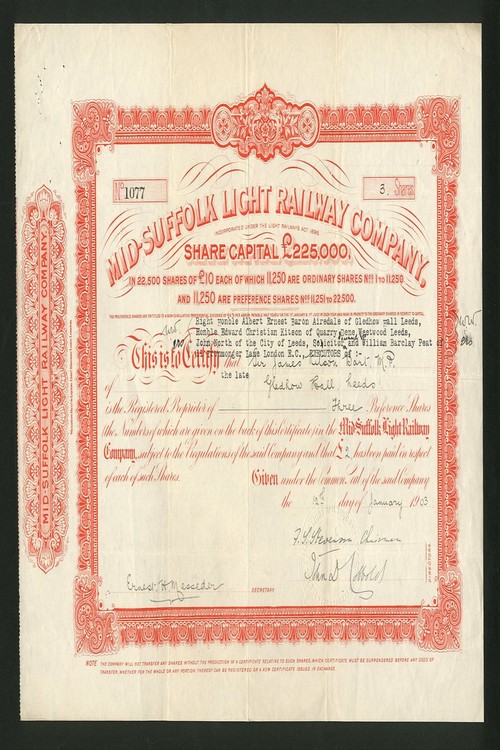 No 1077
3. Shares
MID-SUFFOLK LIGHT RAILWAY COMPANY.
INCORPORATED UNDER THE LIGHT RAILWAYS ACT 1896.
SHARE CAPITAL £225,000,
IN 22,500 SHARES OF £10 EACH OF WHICH 11,250 ARE ORDINARY SHARES Nos 1 to 11,250
AND 11,250 ARE PREFERENCE SHARES Nos 11,251 TO 22,500.
Right Honble Albert Ernest Baron Airedale of Gledhow Hall Leeds,
Honble Edward Christian Kitson of Quarry Dene Westwood Leeds,
John North of the City of Leeds, Solicitor and William Barclay Peat of
Ironmonger Lane London E.C., EXECUTORS of
This is to Certify that Sir James Kitson Bart, M.P.
the late
of Gledhow Hall Leeds
is the Registered Proprietor of Three Preference Shares
the Numbers of which are given on the back of this Certificate, in the Mid-Suffolk Light Railway
Company, subject to the Regulations of the said Company and that £2 has been paid in respect
of each of such Shares.
Given under the Common Seal of the said Company
the 12th day of January 1903
F. S. Stevenson Chairman
DIRECTORS
Ernest H Messeder
SECRETARY
NOTE. THE COMPANY WILL NOT TRANSFER ANY SHARES WITHOUT THE PRODUCTION OF A CERTIFICATE RELATING TO SUCH SHARES, WHICH CERTIFICATE MUST BE SURRENDERED BEFORE ANY DEED OF
TRANSFER, WHETHER FOR THE WHOLE OR ANY PORTION THEREOF CAN BE REGISTERED OR A NEW CERTIFICATE ISSUED IN EXCHANGE.
MID-SUFFOLK LIGHT RAILWAY COMPANY.